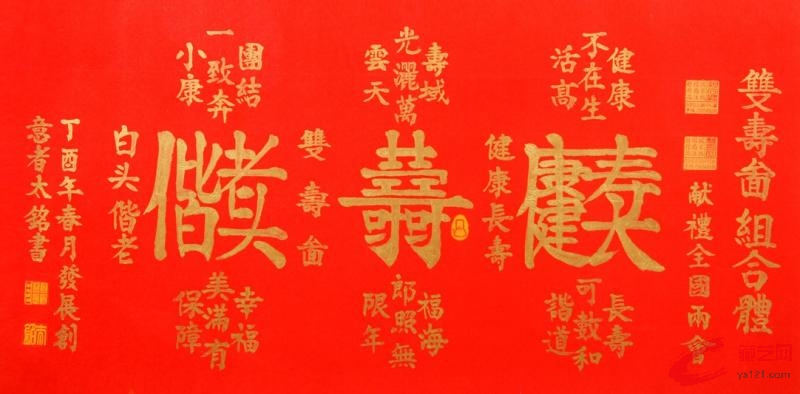 雙壽畣組合體
献禮全國兩會
健康
不在生
活高
健康長壽
長壽
可數和
諧道
壽域
光灑萬
雲天
壽
福海
郎照無
限年
雙壽畣
團結
一致奔
小康
白头偕老
幸福
美滿有
保障
丁酉年春月發展創
意者太銘書
ya121.com